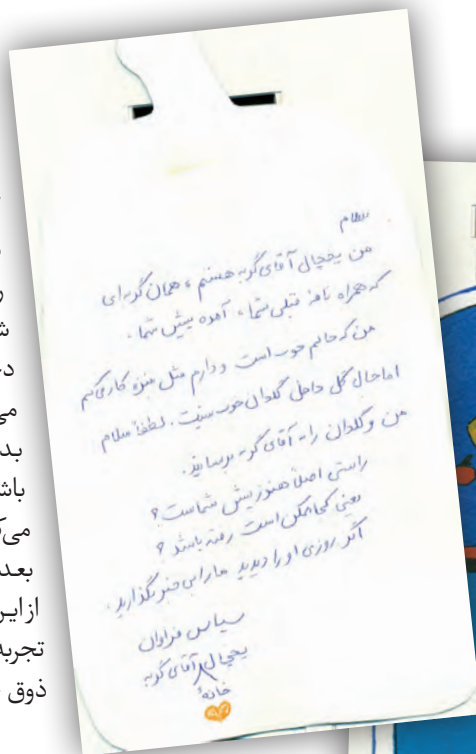 سلام
من یخچال آقای گربه هستم، همان گربه‌ای
که همراه نامهٔ قبلی شما، آمده پیش شما.
من که حالم خوب است و دارم مثل بنز کار می‌کنم
اما حال گل داخل گلدان خوب نیست. لطفاً سلام
من و گلدان را به آقای گربه برسانید.
راستی اصلاً هنوز پیش شماست؟
یعنی کجا ممکن است رفته باشد؟
اگر روزی او را دیدید ما را بی‌خبر نگذارید.
سپاس فراوان
یخچال خانهٔ آقای گربه
باش
می‌ک
بعد
ازاین
تجربه
ذوق